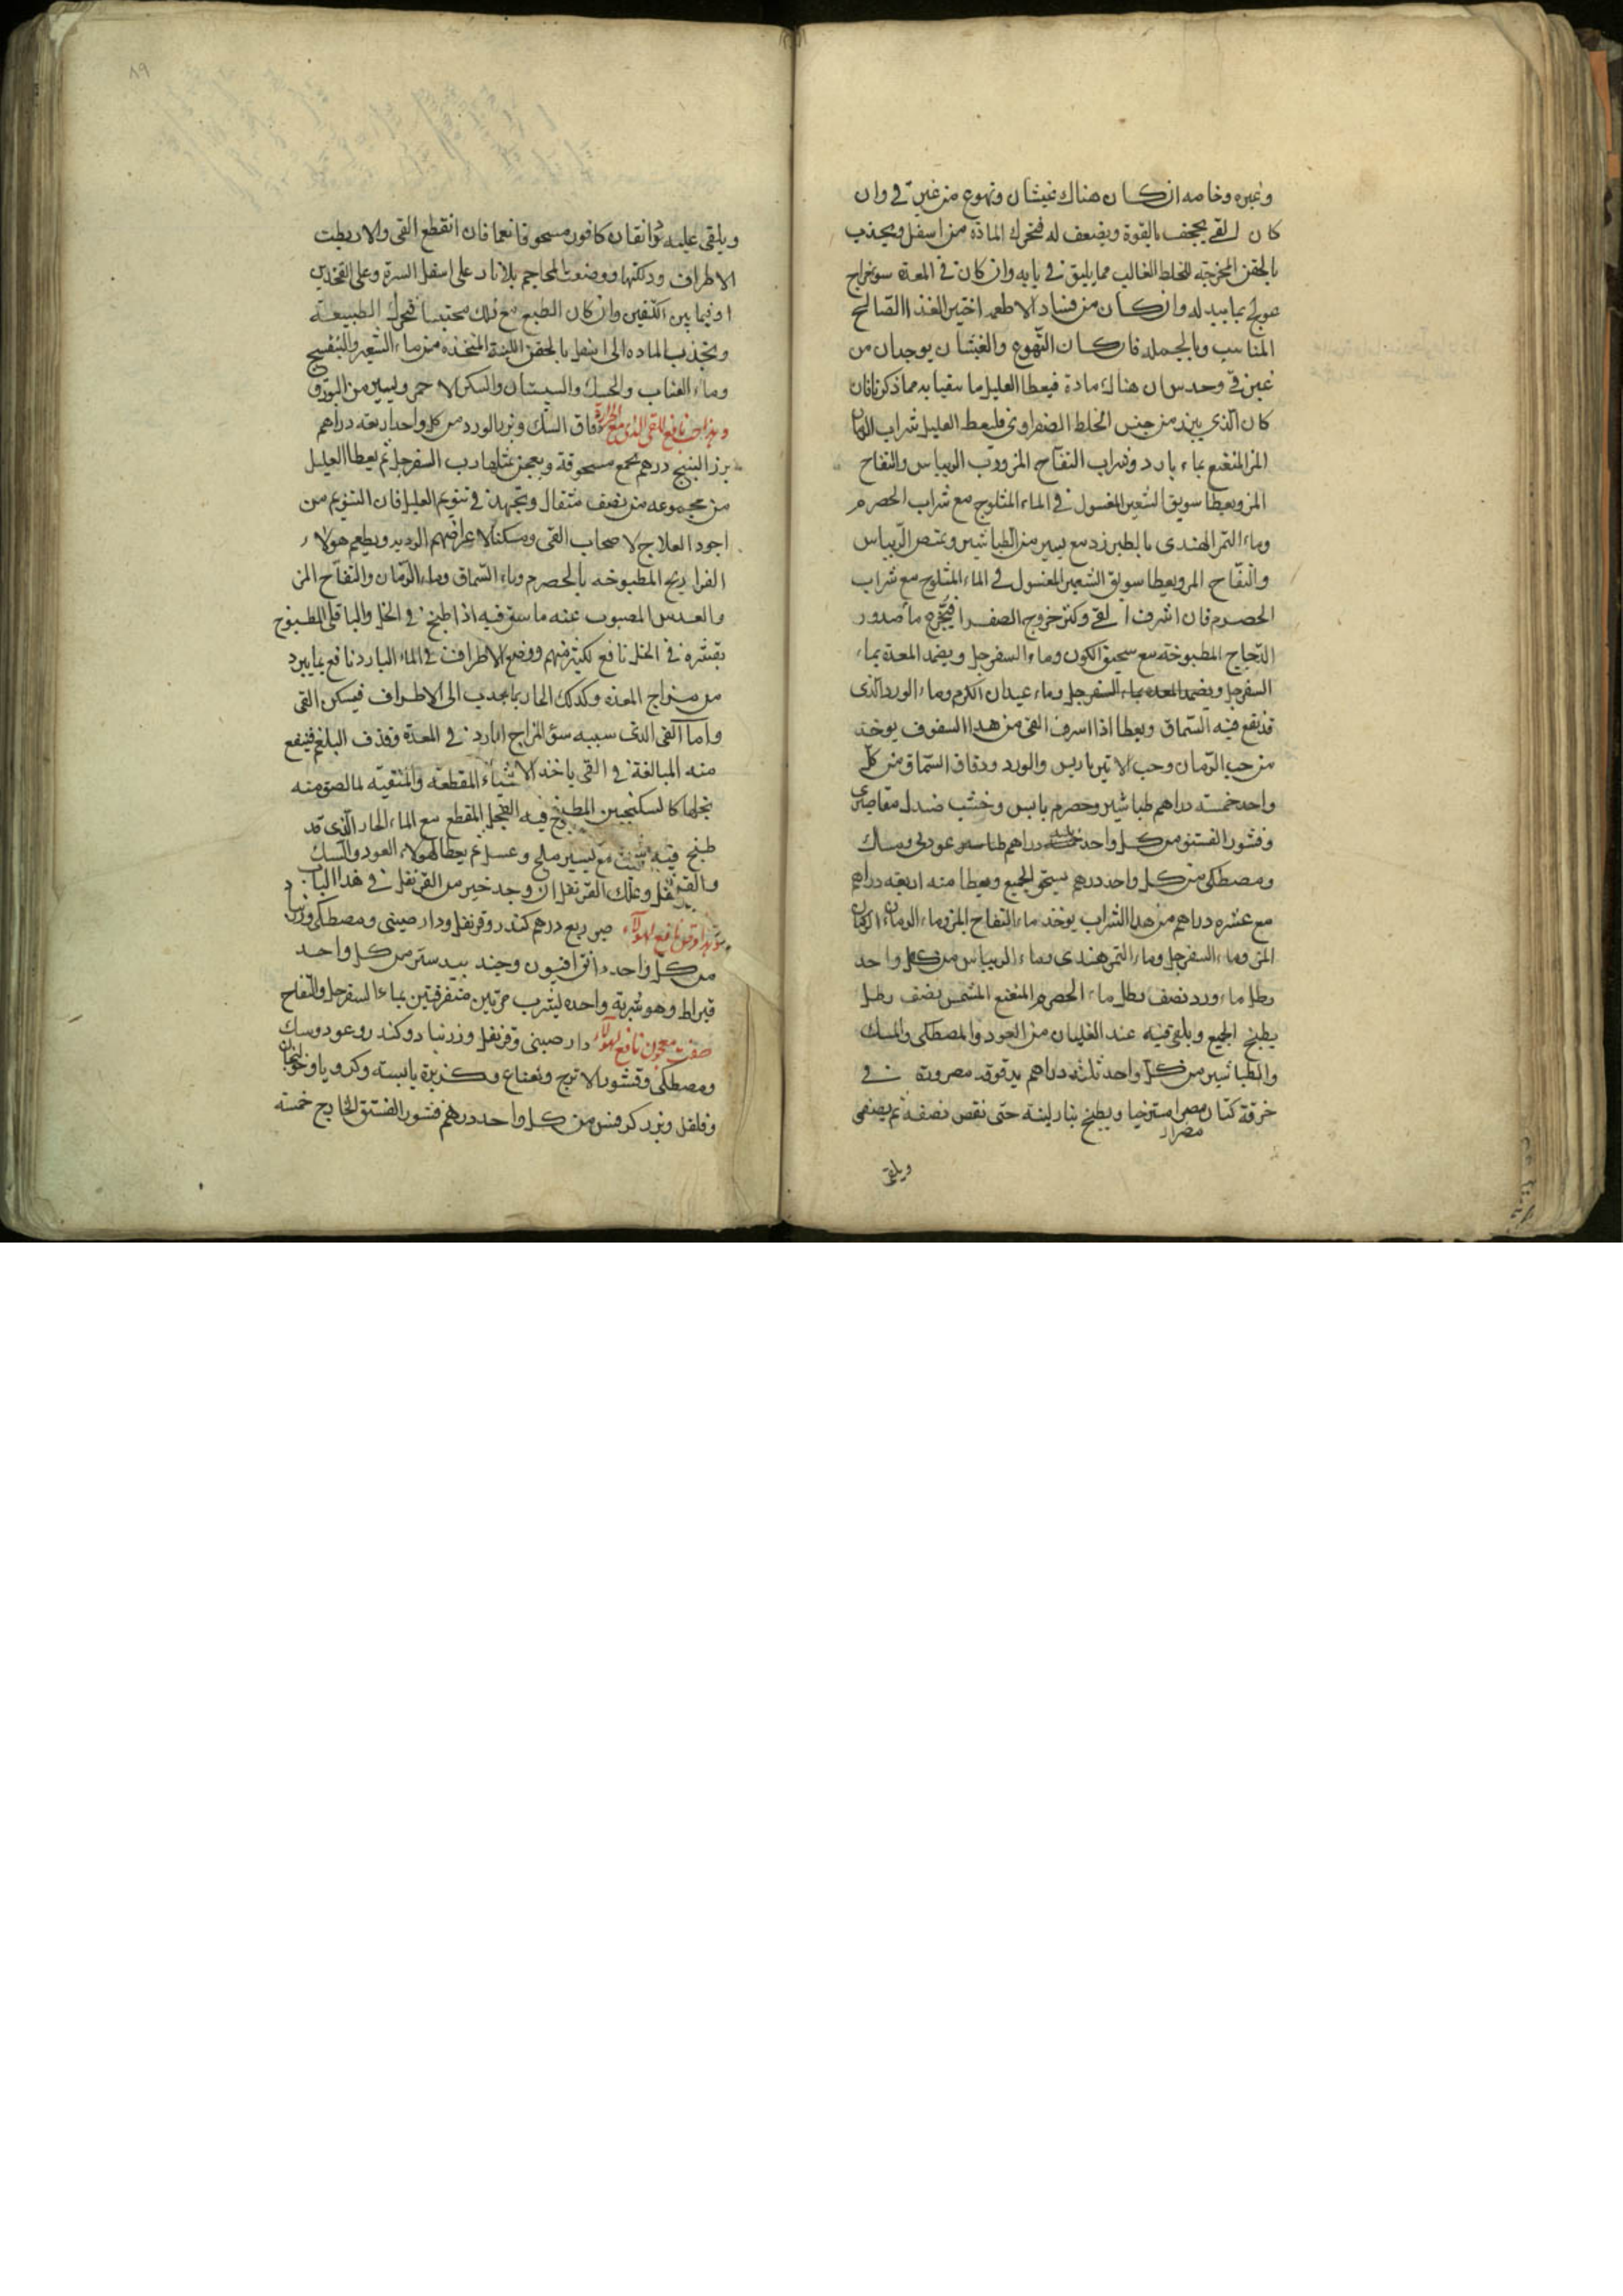 وغيره وخاصه ان كان هناك غيثان وتهوع من غير قى وان
كان القى يجحف بالقوة ويضعف له فتحرك المادة من اسفل ويجذب
بالحقن المخرجة للخلط الغالب مما يليق فى بابه وان كان فى المعدة سومزاج
عولج بما يبدله وان كان من فساد الاطعمه اختير الغذا الصالح
المناسب وبالجمله فان كان التهوع والغيثان يوجدان من
غير قى وحدس ان هناك مادة فيعطا العليل ما يتقيا به مما ذكرنا فان
كان الذى يبرز من جنس الخلط الصفراوى فليعط العليل شراب الرمان
المز المنعنع بماء بارد وشراب التفاح المز ورب الريباس والتفاح
المز ويعطا سويق الشعير المغسول فى الماء المثلوج مع شراب الحصرم
وماء التمر الهندى بالطبرزد مع يسير من الطباشير ويمتص الريباس
والتفاح المز ويعطا سويق الشعير المغسول فى الماء المثلوج مع شراب
الحصرم فان اشرف القى وكثر خروج الصفرا فتجرع ما صدور
الدجاج المطبوخه مع سحيق الكمون وماء السفرجل ويضمد المعدة بماء
السفرجل ويضمد المعده بماء السفرجل وماء عيدان الكرم وماء الورد الذى
قد نقع فيه السماق ويعطا اذا اسرف القى من هدا السفوف يوخذ
من حب الرمان وحب الاتيرباريس والورد ودقاق السماق من كل
واحد خمسة دراهم طباشير وحصرم يابس وخشب صندل مقاصيرى
وقشور الفستق من كل واحد دراهم عود نى وسك
ومصطكى من كل واحد درهم يسحق الجميع ويعطا منه اربعه دراهم
مع عشره دراهم من هدا الشراب يوخد ماء التفاح المز وماء الرمان
المز وماء السفرجل وماء التمر هندى وماء الريباس من كل واحد
رطل ماء ورد نصف رطل ماء الحصرم المنعنع المشمس نصف رطل
يطبخ الجميع ويلقى فيه عند الغليان من العود والمصطكى والسك
والطباشير من كل واحد ثلثه دراهم مدقوقه مصرورة فى
خرقة كتان مسترخيا ويطبخ بنار لينة حتى نقص نصفه ثم يصفى
ويلقى
٨٩
ويلقى عليه دانقان كافور مسحوقا ناعما فان انقطع القى والا ربطت
الاطراف ودلكتها ووضعت المحاجم بلا نار على اسفل السرة وعلى الفخذين
او فيما بين الكتفين وان كان الطبع مع ذلك محتبسا فتحرك الطبيعة
وتجذب الماده الى اسفل بالحقن اللينة المتخذه من ماء الشعير والبنفسج
وماء العناب والحسك والسبستان والسكر الاحمر ويسير من البورق
نافع للقى الذى مع الحرارة دقاق السك وبزر الورد من كل واحد اربعه دراهم
بزر البنج درهم تجمع مسحوقة ويعجن بمثلها رب السفرجل ثم يعطا العليل
من مجموعه من نصف مثقال ويجتهد فى تنويم العليل فان التنويم من
اجود العلاج لاصحاب القى ومسكنا لاعراضهم الرديه ويطعم هولاء
الفراريج المطبوخه بالحصرم وماء السماق وماء الرمان والتفاح المز
والعدس المصبوب عنه ما سلق فيه اذا طبخ فى الخل والباقلى المطبوخ
بقشره فى الخل نافع لكثير منهم ووضع الاطراف فى الماء البارد نافع بما يبرد
من مزاج المعده وكدلك الحار بما يجدب الى الاطراف فيسكن القى
واما القى الذى سببه سؤ المزاج البارد فى المعدة وقذف البلغم فينفع
منه المبالغة فى القى باخذ الاشياء المقطعة والمنقيه لما لصق منه
بخلها كالسكنجبين المطبوخ فيه الفجل المقطع مع الماء الحار الذى قد
طبخ فيه شبت مع يسير ملح وعسل ثم يعطا لهولاء العود والسك
والقرنفل وعلك القرنفل ان وجد خير من القرنفل فى هدا الباب
نافع لهولاء صبر ربع درهم كندر وقرنفل ودار صينى ومصطكى
من كل واحد دانق افيون وجند بيدستر من كل واحد
قيراط وهو شربة واحده ليشرب مرتين متفرقتين بماء السفرجل والتفاح
صفت معجون نافع لهولاء دار صينى وقرنفل وزرنباد وكندر وعود وسك
ومصطكى وقشور الاترج ونعناع وكزبرة يابسته وكرويا وخولنجان
وفلفل وبزر كرفس من كل واحد درهم قشور الفستق الخارج خمسة